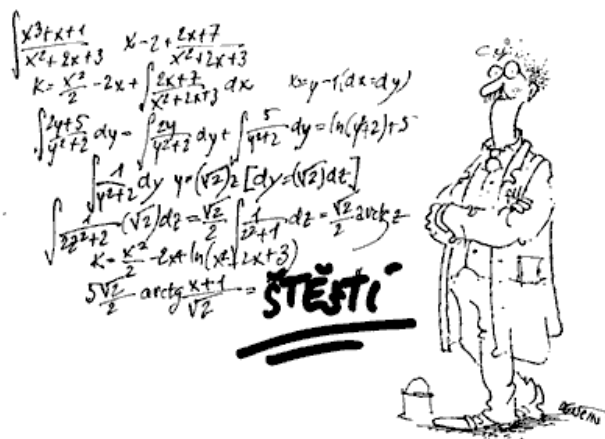 ∫ x³+x+1 / x²+2x+3   x-2+ 2x+7 / x²+2x+3
K = x²/2 -2x+ ∫ 2x+7 / x²+2x+3 dx   x=y-1, (dx=dy)
∫ 2y+5 / y²+2 dy = ∫ 2y / y²+2 dy + ∫ 5 / y²+2 dy = ln(y²+2)+5
∫ 1 / y²+2 dy y=(√2)z [dy=(√2)dz]
∫ 1 / 2z²+2 (√2)dz = √2/2 ∫ 1 / z²+1 dz = √2/2 arctg z
K = x²/2 -2x+ ln(x² 2x+3)
5√2/2 arctg x+1 / √2 = ŠTĚSTÍ